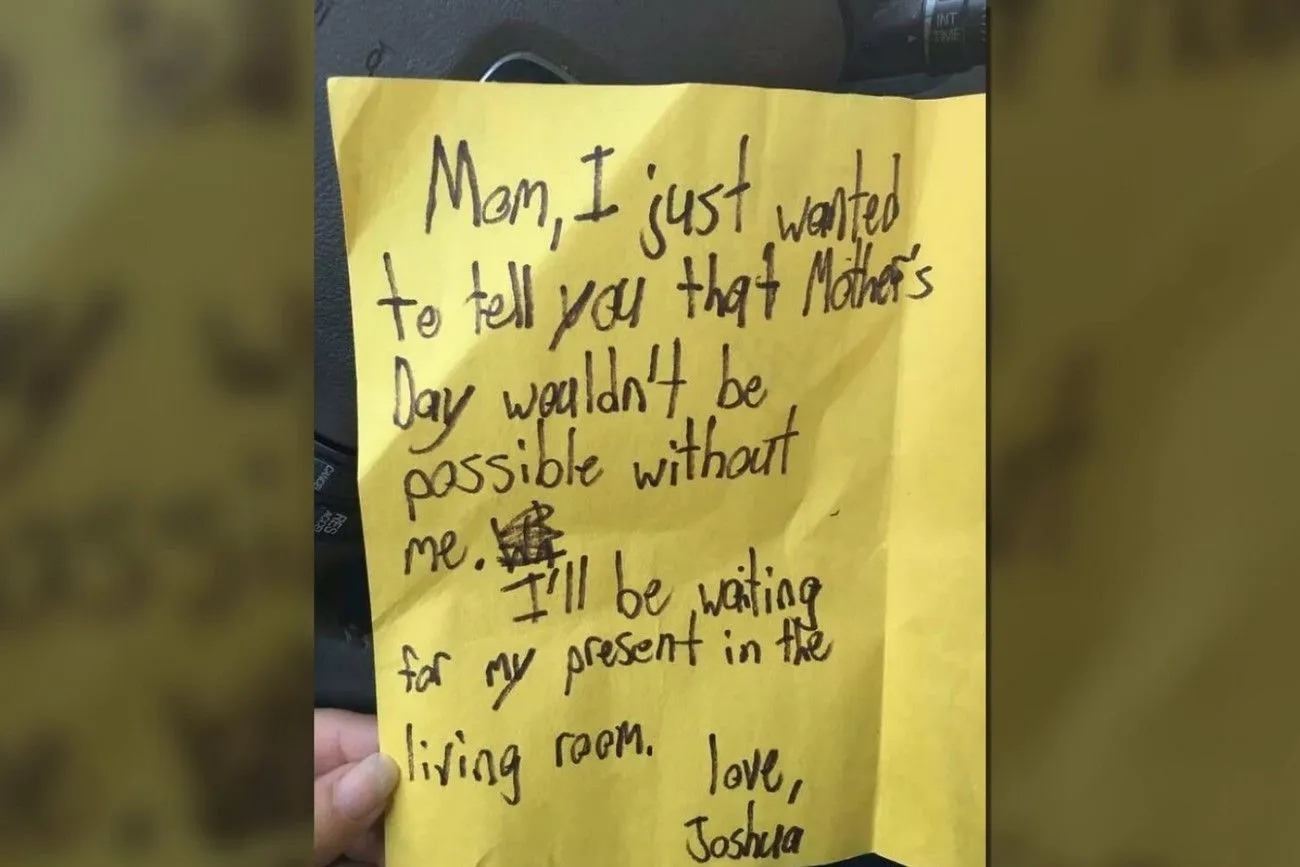 INT
TIME
Mom, I just wanted
to tell you that Mother's
Day wouldn't be
possible without
me.
I'll be waiting
for my present in the
living room.
love,
Joshua
CANCEL
RES
ACC